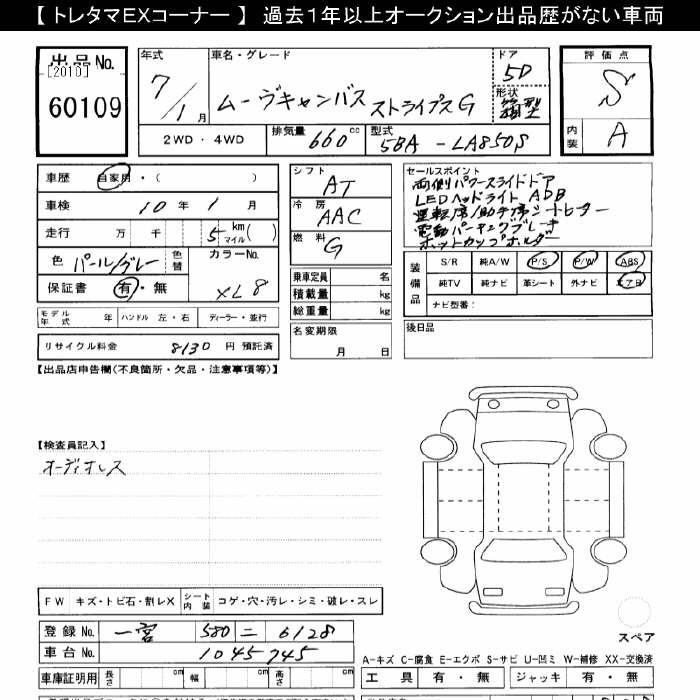 【 トレタマEXコーナー 】 過去１年以上オークション出品歴がない車両
出品No.
[2010]
60109
年式
7/1月
車名・グレード
ムーヴキャンバス ストライプスG
ドア
5D
形状
箱型
2WD・4WD
排気量 660 cc
型式 5BA - LA850S
評価点
S
内装 A
車歴 自家用・( )
車検 10年 1月
走行 万 千 5 km マイル ( )
色 パール/グレー
色替
カラーNo.
XL8
保証書 有・無
モデル年式 年
ハンドル 左・右
ディーラー・並行
リサイクル料金 8130 円 預託済
シフト
AT
冷房
AAC
燃料
G
乗車定員 名
積載量 kg
総重量 kg
名変期限
月 日
セールスポイント
両側パワースライドドア
LEDヘッドライト ADB
運転席/助手席シートヒーター
電動パーキングブレーキ
ホットカップホルダー
装備品
S/R 純A/W P/S P/W ABS
純TV 純ナビ 革シート 外ナビ エアB
ナビ型番:
後日品
【出品店申告欄(不良箇所・欠品・注意事項等)】
【検査員記入】
オーディオレス
FW キズ・トビ石・割レX
シート内装 コゲ・穴・汚レ・シミ・破レ・スレ
登録No. 一宮 580 ニ 6128
車台No. 1045745
車庫証明用 長さ cm 幅 cm 高さ cm
スペア
A-キズ C-腐食 E-エクボ S-サビ U-凹ミ W-補修 XX-交換済
工具 有・無 ジャッキ 有・無